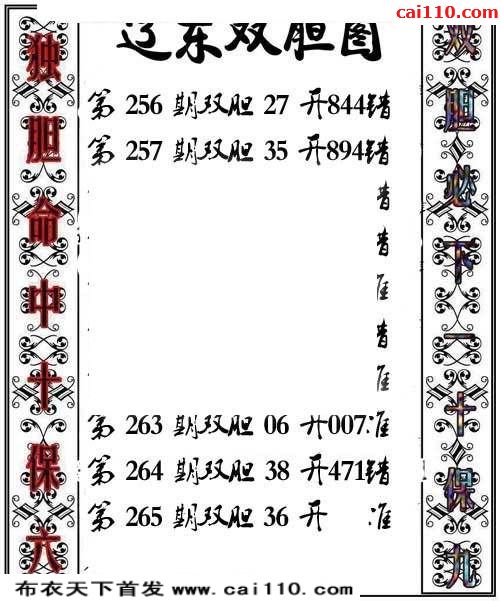 cai110.com
辽东双胆图
独胆命中十保六
第 256 期双胆 27 开844错
第 257 期双胆 35 开894错
第 263 期双胆 06 开007准
第 264 期双胆 38 开471错
第 265 期双胆 36 开 准
双胆必下一十保九
布衣天下首发 www.cai110.com